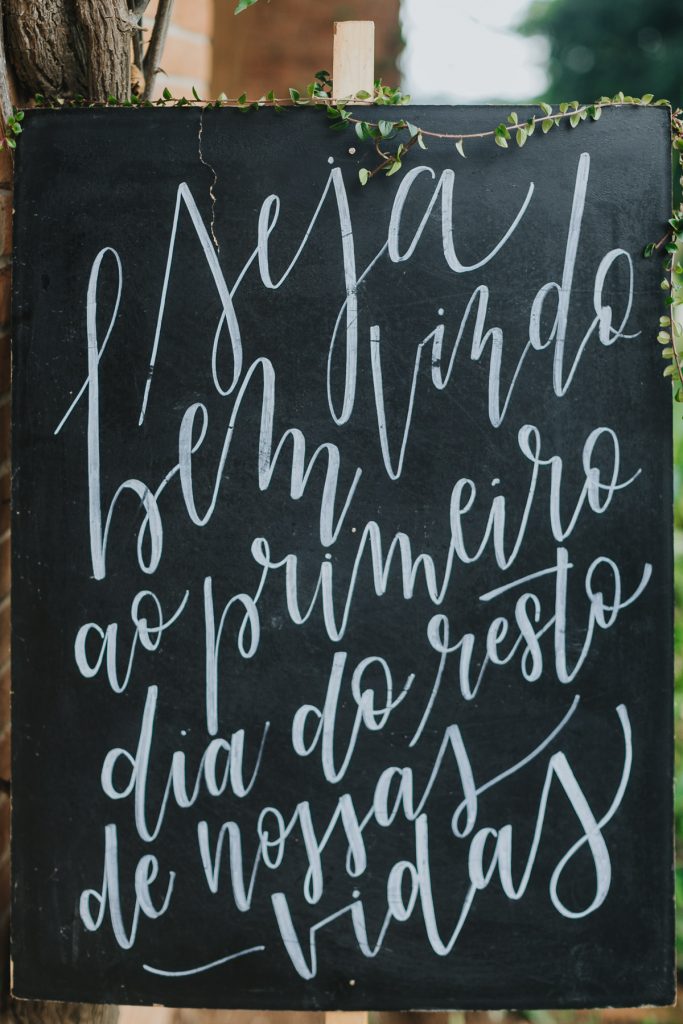 seja
bem vindo
ao primeiro
dia do resto
de nossas
vidas